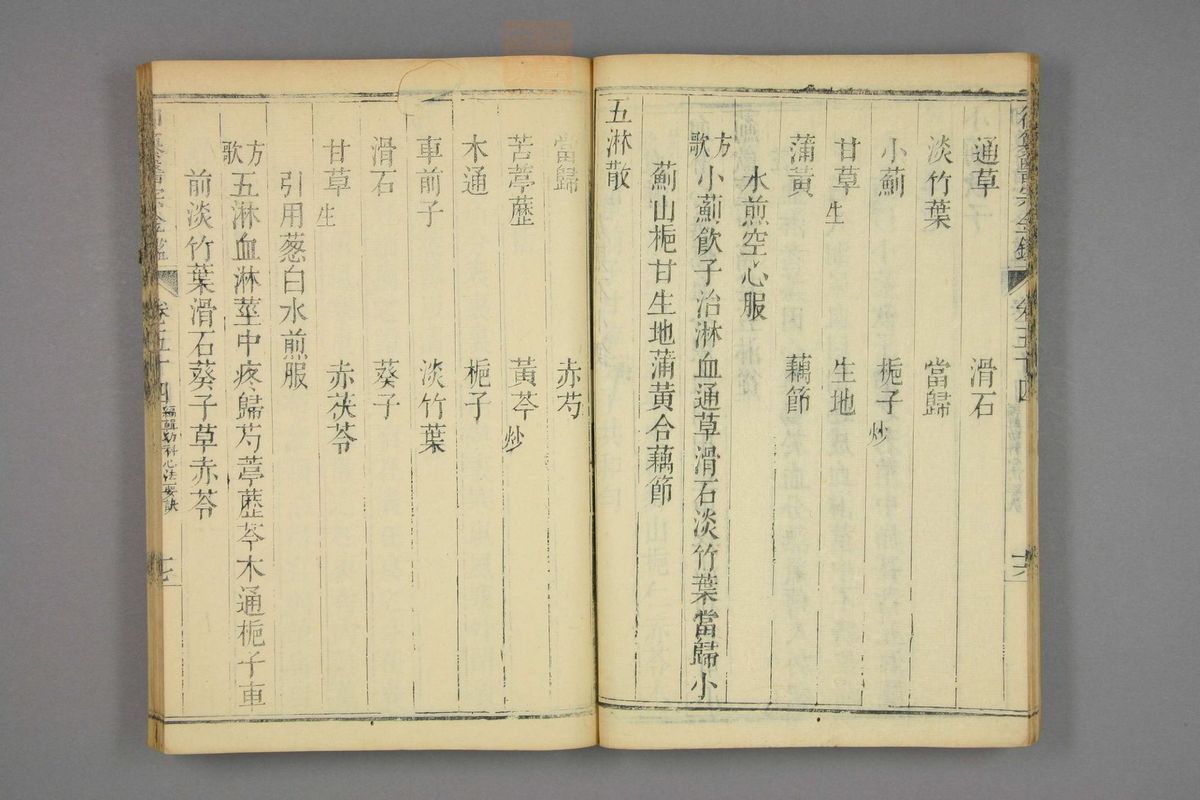 通草　滑石
淡竹葉　當歸
小薊　梔子炒
甘草生　生地
蒲黃　藕節
水煎空心服
方歌　小薊飲子治淋血通草滑石淡竹葉當歸小
薊山梔甘生地蒲黃合藕節
五淋散
當歸　赤芍
苦葶藶　黃芩炒
木通　梔子
車前子　淡竹葉
滑石　葵子
甘草生　赤茯苓
引用葱白水煎服
方歌　五淋血淋莖中疼歸芍葶藶芩木通梔子車
前淡竹葉滑石葵子草赤苓
卷五十四　編輯幼科心法要訣